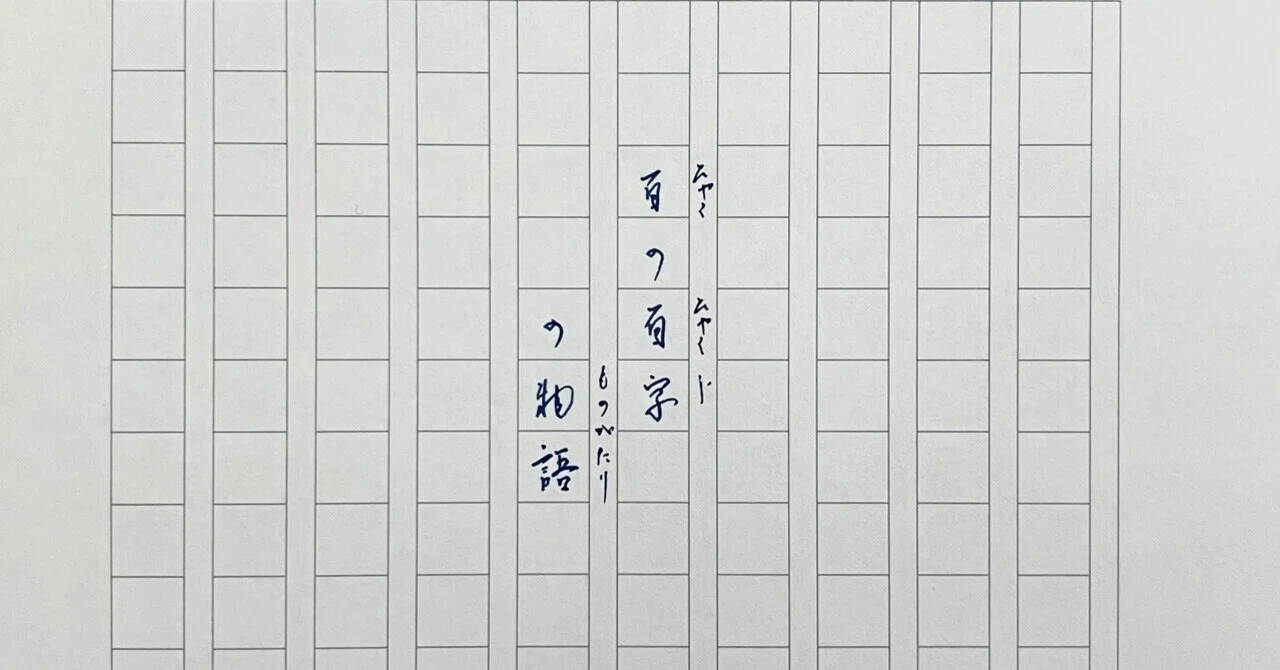 百の百字
ひゃく ひゃくじ
の物語
ものがたり